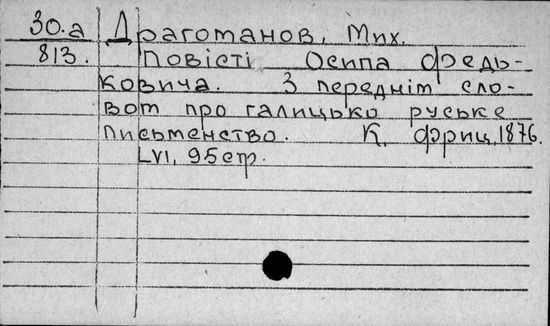 30.а Драгоманов, Мих.
813. Повісті Осипа Федь-
ковича. З переднім сло-
вом про галицько руське
письменство. К, Фриц, 1876.
LVI, 95 стр.